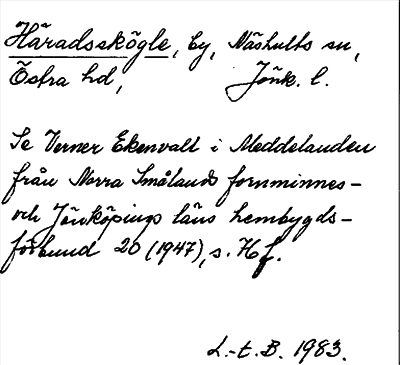 Häradsskögle, by, Näshults sn,
Östra hd, Jönk. l.
Se Verner Ekenvall i Meddelanden
från Norra Smålands fornminnes-
och Jönköpings läns hembygds-
förbund 20 (1947), s. f.
L.-t. B. 1983.